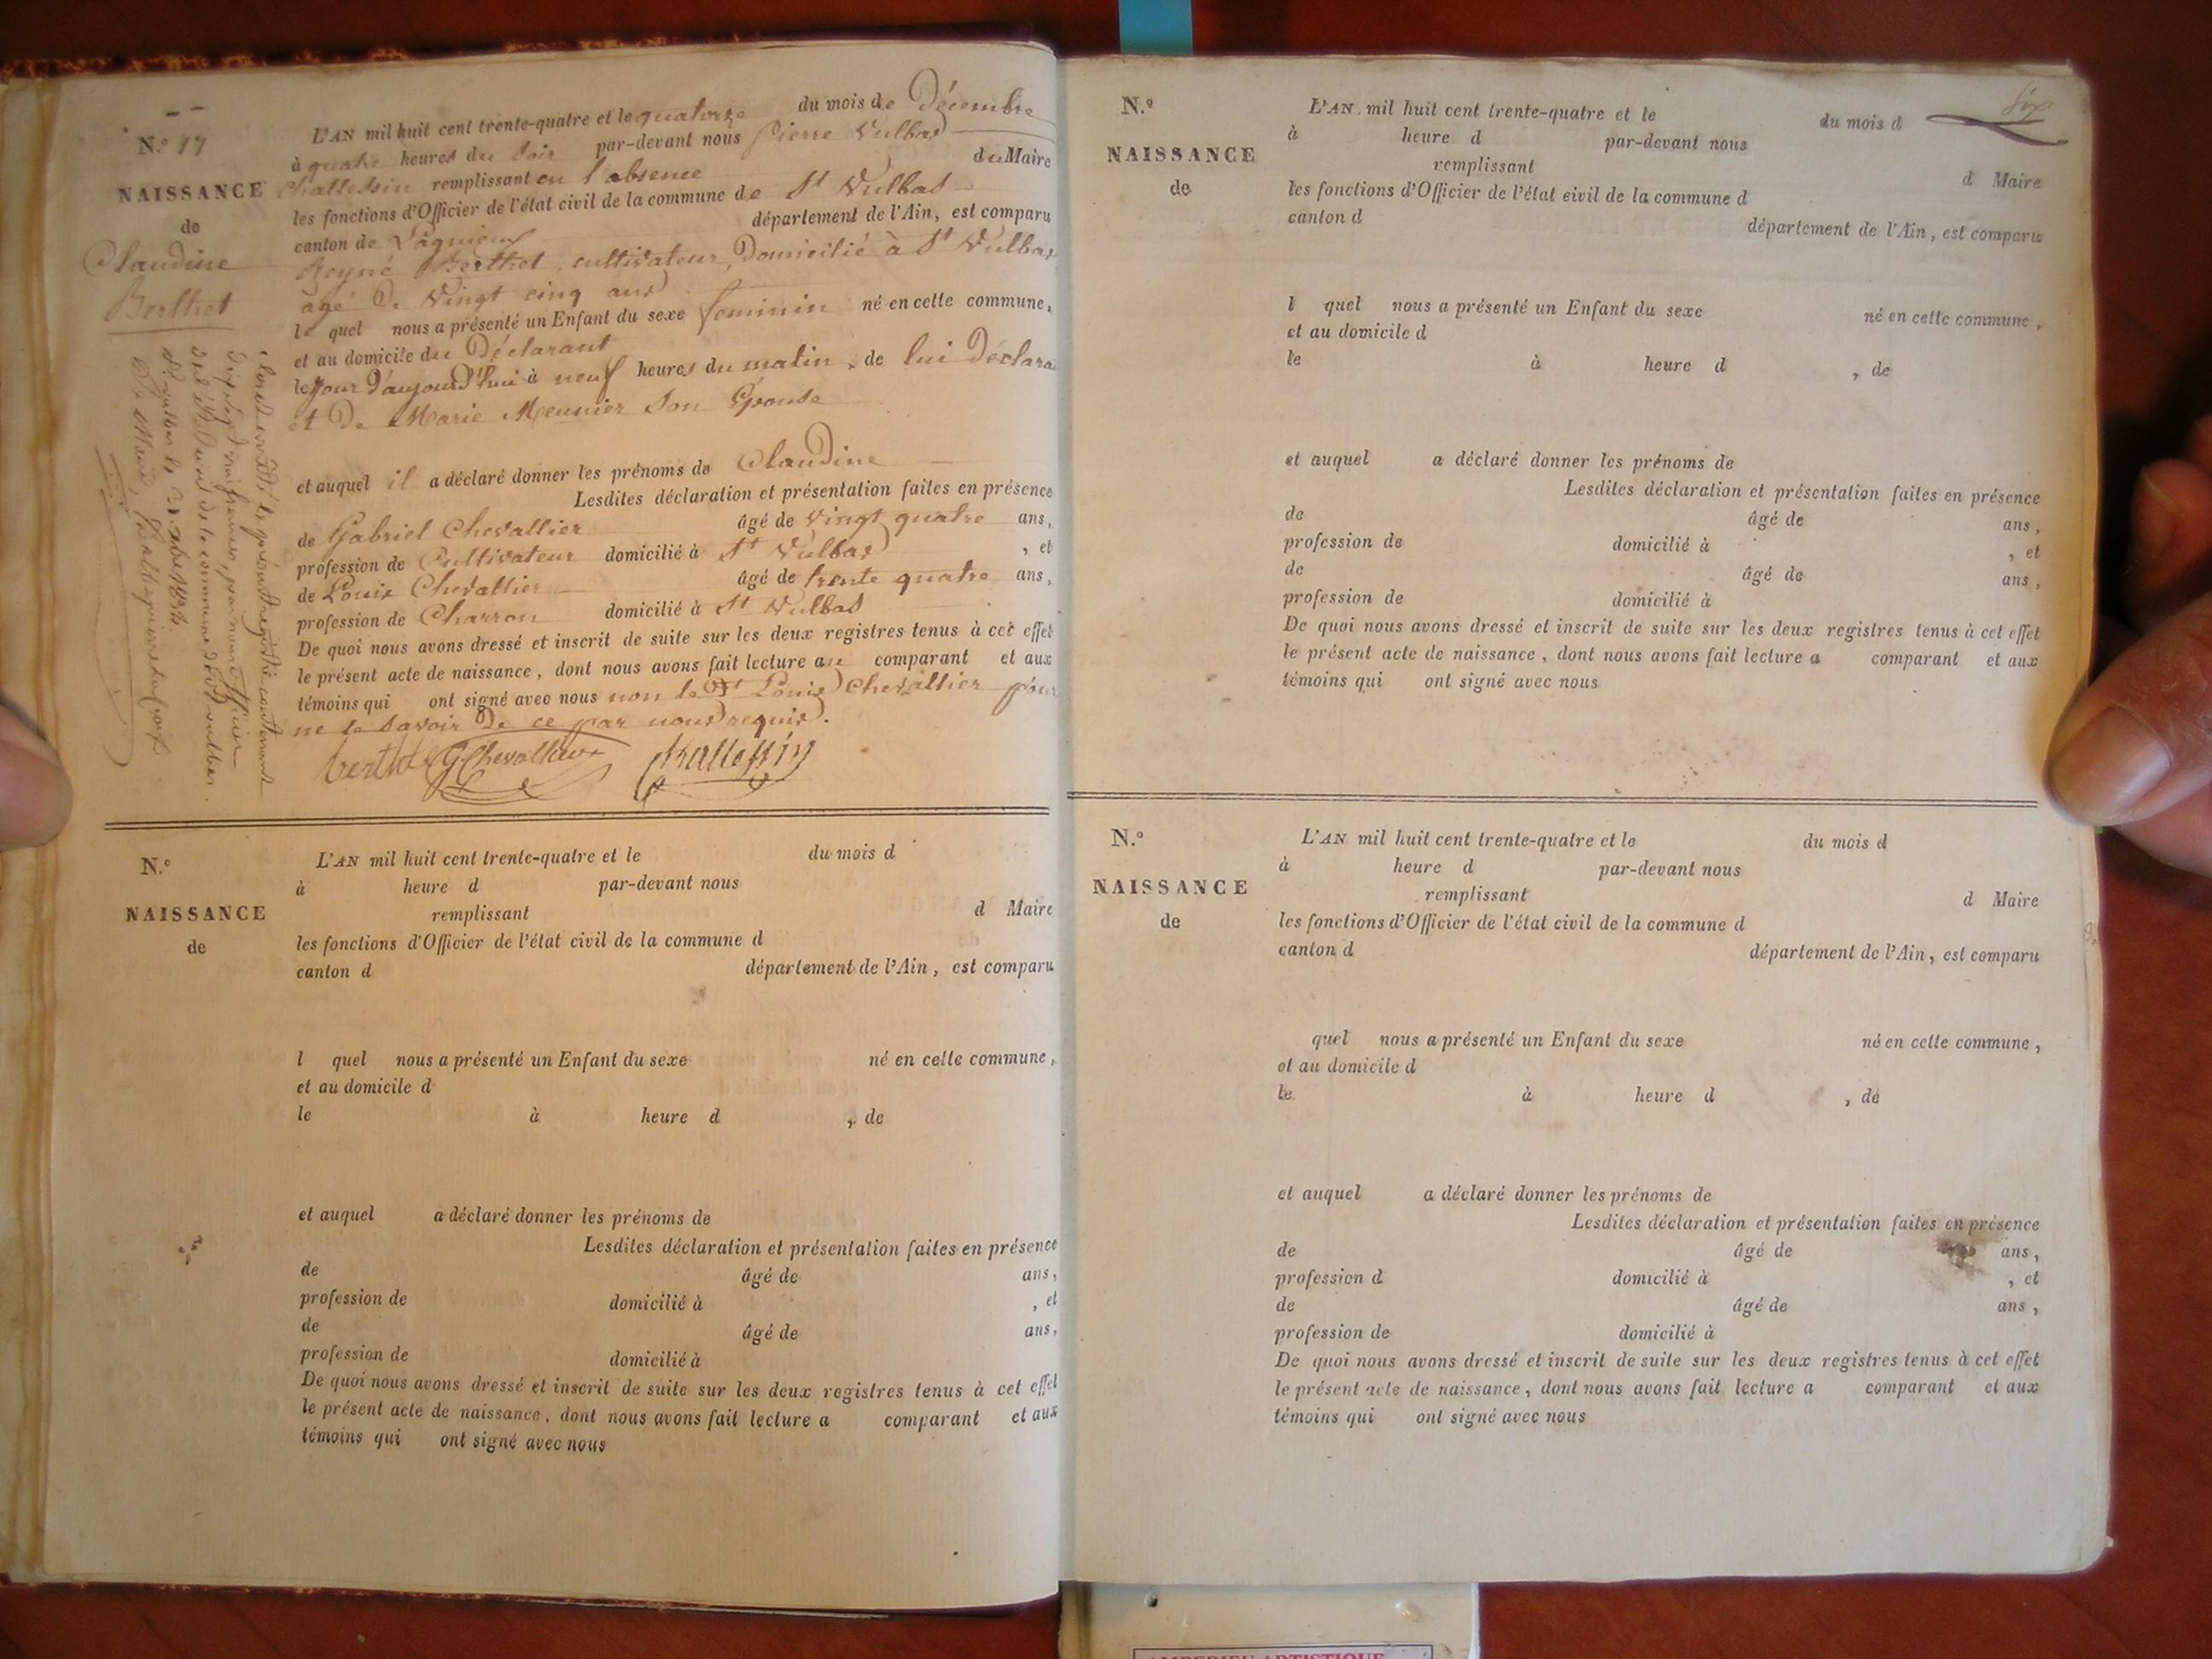 N.º 17
NAISSANCE
de
Claudine
Berthet
L'AN mil huit cent trente-quatre et le quatorze du mois de Décembre
à quatre heures du soir par-devant nous Pierre Vulbas
Challessin remplissant en l'absence du Maire
les fonctions d'Officier de l'état civil de la commune de St Vulbas
canton de Lagnieux département de l'Ain, est comparu
Reyné Berthet, cultivateur, Domicilié à St Vulbas
agé de vingt cinq ans
le quel nous a présenté un Enfant du sexe feminin né en cette commune,
et au domicile du Déclarant
le jour d'aujourd'hui à neuf heures du matin, de lui Déclara
et De Marie Meunier son Épouse
et auquel il a déclaré donner les prénoms de Claudine
Lesdites déclaration et présentation faites en présence
de Gabriel Chevallier âgé de vingt quatre ans,
profession de Cultivateur domicilié à St Vulbas , et
de Louis Chevallier âgé de trente quatre ans,
profession de Charron domicilié à St Vulbas
De quoi nous avons dressé et inscrit de suite sur les deux registres tenus à cet effet
le présent acte de naissance, dont nous avons fait lecture au comparant et aux
témoins qui ont signé avec nous non le dt Louis Chevallier pour
ne le savoir De ce par nous requis.
berthet GChevallier Challessin
N.º
NAISSANCE
de
L'AN mil huit cent trente-quatre et le du mois d
à heure d par-devant nous
remplissant d Maire
les fonctions d'Officier de l'état civil de la commune d
canton d département de l'Ain, est comparu
l quel nous a présenté un Enfant du sexe né en cette commune,
et au domicile d
le à heure d , de
et auquel a déclaré donner les prénoms de
Lesdites déclaration et présentation faites en présence
de âgé de ans,
profession de domicilié à , et
de âgé de ans,
profession de domicilié à
De quoi nous avons dressé et inscrit de suite sur les deux registres tenus à cet effet
le présent acte de naissance, dont nous avons fait lecture a comparant et aux
témoins qui ont signé avec nous
six
N.º
NAISSANCE
de
L'AN mil huit cent trente-quatre et le du mois d
à heure d par-devant nous
remplissant d Maire
les fonctions d'Officier de l'état civil de la commune d
canton d département de l'Ain, est comparu
l quel nous a présenté un Enfant du sexe né en cette commune,
et au domicile d
le à heure d , de
et auquel a déclaré donner les prénoms de
Lesdites déclaration et présentation faites en présence
de âgé de ans,
profession de domicilié à , et
de âgé de ans,
profession de domicilié à
De quoi nous avons dressé et inscrit de suite sur les deux registres tenus à cet effet
le présent acte de naissance, dont nous avons fait lecture a comparant et aux
témoins qui ont signé avec nous
N.º
NAISSANCE
de
L'AN mil huit cent trente-quatre et le du mois d
à heure d par-devant nous
remplissant d Maire
les fonctions d'Officier de l'état civil de la commune d
canton d département de l'Ain, est comparu
quel nous a présenté un Enfant du sexe né en cette commune,
et au domicile d
le à heure d , de
et auquel a déclaré donner les prénoms de
Lesdites déclaration et présentation faites en présence
de âgé de ans,
profession d domicilié à , et
de âgé de ans,
profession de domicilié à
De quoi nous avons dressé et inscrit de suite sur les deux registres tenus à cet effet
le présent acte de naissance, dont nous avons fait lecture a comparant et aux
témoins qui ont signé avec nous